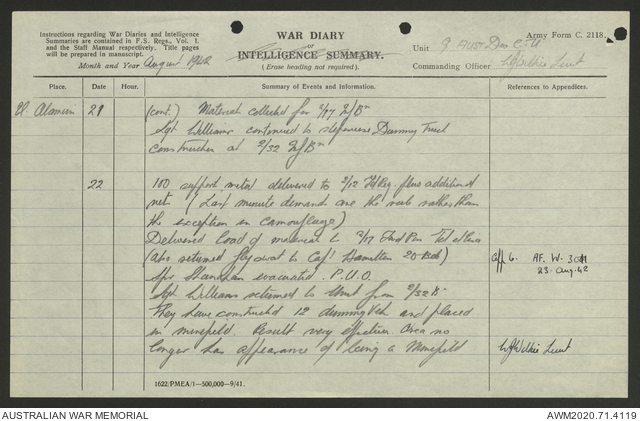 Instructions regarding War Diaries and Intelligence
Summaries are contained in F.S. Regs., Vol. I.
and the Staff Manual respectively. Title pages
will be prepared in manuscript.
Month and Year August 1942
WAR DIARY
OR
INTELLIGENCE SUMMARY.
(Erase heading not required).
Army Form C. 2118.
Unit 9 Aust Div
Commanding Officer Lieut
Place. Date Hour. Summary of Events and Information. References to Appendices.
El Alamein 21 (cont.) Material collected for 2/17 Inf Bn
Sgt Williams continued to supervise Dummy Truck
construction at 2/32 Inf Bn
22 100 support metal delivered to 2/12 Fd Reg. plus additional
net (Last minute demands are the rule rather than
the exception in Camouflage)
Delivered load of material to Tel el Eisa
(also returned to Capt Hamilton
Spr Shanahan evacuated. P.U.O.
App 6. AF. W. 3011
23. Aug. 42
Sgt Williams returned to Unit from 2/32 Bn
They have constructed 12 dummy Veh and placed
in minefield. Result very effective. Area no
longer has appearance of being a Minefield
Lieut
1622/PMEA/1—500,000—9/41.
AUSTRALIAN WAR MEMORIAL
AWM2020.71.4119